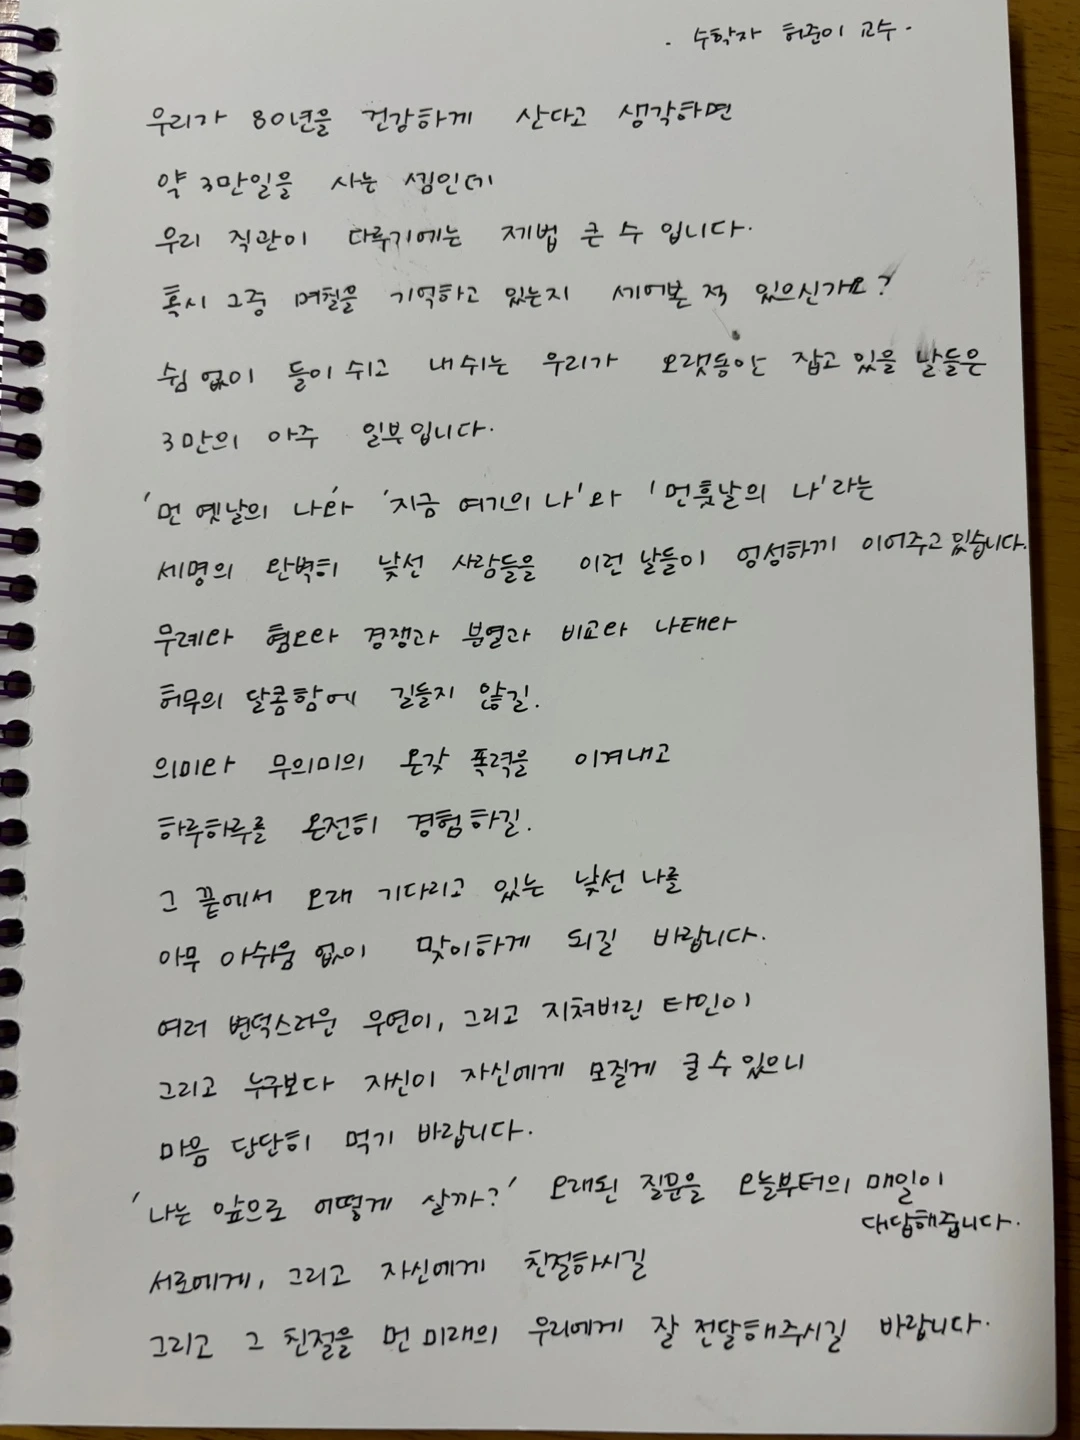 . 수학자 허준이 교수 .
우리가 80년을 건강하게 산다고 생각하면
약 3만일을 사는 셈인데
우리 직관이 다루기에는 제법 큰 수 입니다.
혹시 그중 며칠을 기억하고 있는지 세어본 적 있으신가요?
쉼 없이 들이 쉬고 내쉬는 우리가 오랫동안 잡고 있을 날들은
3만의 아주 일부입니다.
'먼 옛날의 나'와 '지금 여기의 나'와 '먼훗날의 나'라는
세명의 완벽히 낯선 사람들을 이런 날들이 엉성하게 이어주고 있습니다.
무례와 혐오와 경쟁과 분열과 비교와 나태와
허무의 달콤함에 길들지 않길.
의미와 무의미의 온갖 폭력을 이겨내고
하루하루를 온전히 경험하길.
그 끝에서 오래 기다리고 있는 낯선 나를
아무 아쉬움 없이 맞이하게 되길 바랍니다.
여러 변덕스러운 우연이, 그리고 지쳐버린 타인이
그리고 누구보다 자신이 자신에게 모질게 굴 수 있으니
마음 단단히 먹기 바랍니다.
'나는 앞으로 어떻게 살까?' 오래된 질문을 오늘부터의 매일이
대답해줍니다.
서로에게, 그리고 자신에게 친절하시길
그리고 그 친절을 먼 미래의 우리에게 잘 전달해주시길 바랍니다.